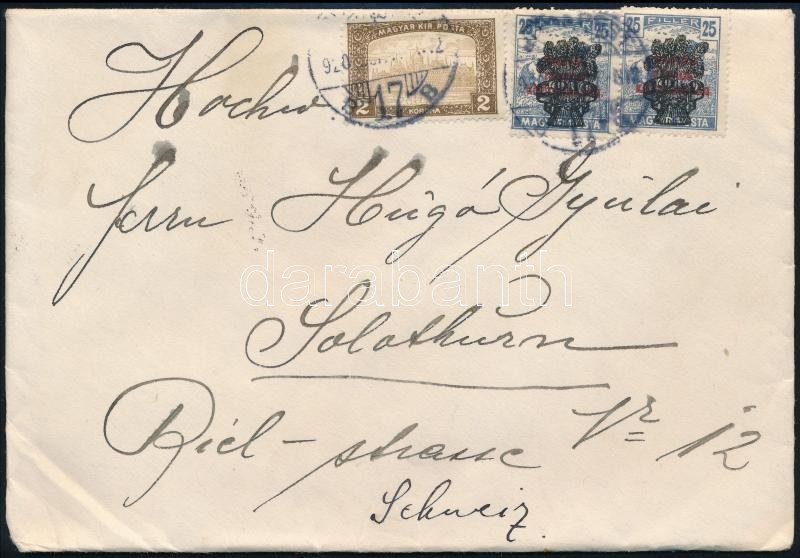 MAGYAR KIR. POSTA
2 KORONA 2
25 FILLÉR 25
MAGYAR POSTA
FILLÉR 25
MAGYAR POSTA
920
17
B
Herrn Húgó Gyúlai
darabanth
Solothurn
Biel-strasse Nr 12
Schweiz.